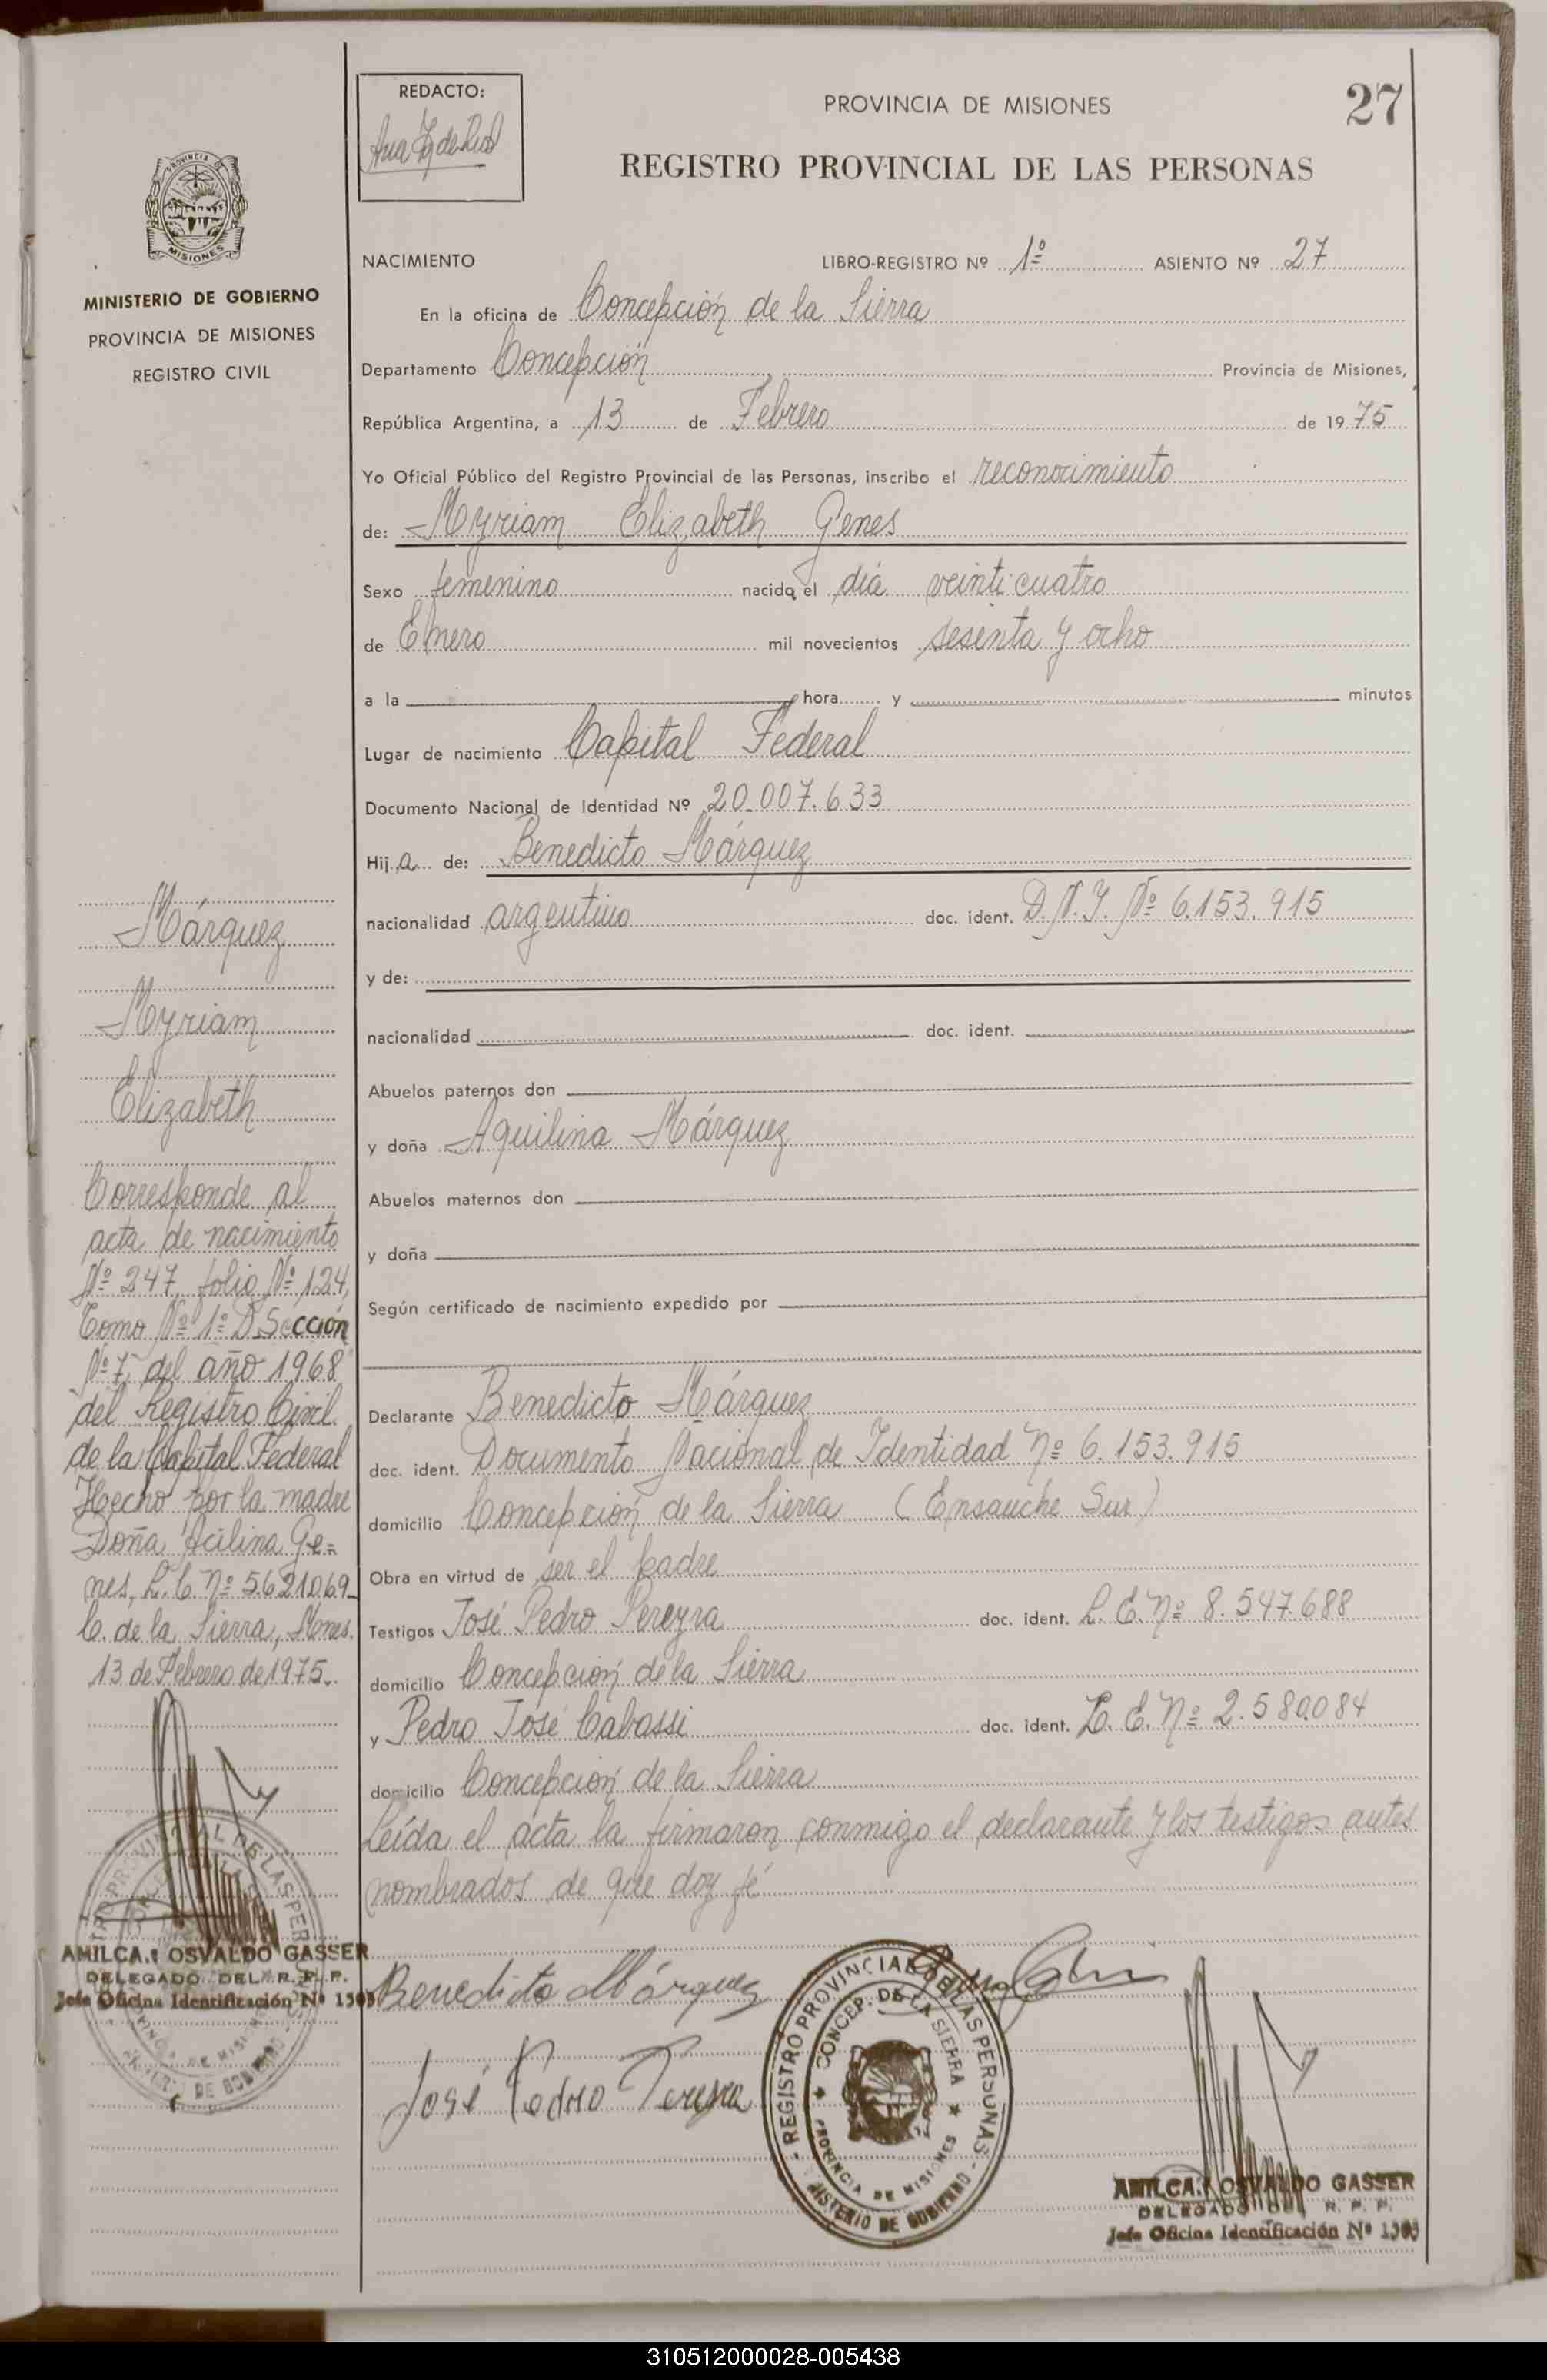 REDACTO:
PROVINCIA DE MISIONES
27
REGISTRO PROVINCIAL DE LAS PERSONAS
PROVINCIA DE
MISIONES
MINISTERIO DE GOBIERNO
PROVINCIA DE MISIONES
REGISTRO CIVIL
NACIMIENTO LIBRO-REGISTRO Nº 1º ASIENTO Nº 27
En la oficina de Concepción de la Sierra
Departamento Concepción Provincia de Misiones,
República Argentina, a 13 de Febrero de 1975
Yo Oficial Público del Registro Provincial de las Personas, inscribo el reconocimiento
de: Myriam Elizabeth Genes
Sexo femenino nacida el día veinticuatro
de Enero mil novecientos sesenta y ocho
a la hora y minutos
Lugar de nacimiento Capital Federal
Documento Nacional de Identidad Nº 20.007.633
Hija de: Benedicto Márquez
nacionalidad argentino doc. ident. D.N.I. Nº 6.153.915
y de:
nacionalidad doc. ident.
Abuelos paternos don
y doña Aquilina Márquez
Abuelos maternos don
y doña
Según certificado de nacimiento expedido por
Declarante Benedicto Márquez
doc. ident. Documento Nacional de Identidad Nº 6.153.915
domicilio Concepción de la Sierra (Ensanche Sur)
Obra en virtud de ser el padre
Testigos José Pedro Pereyra doc. ident. L.E. Nº 8.547.688
domicilio Concepción de la Sierra
y Pedro José Cabassi doc. ident. L.E. Nº 2.580.084
domicilio Concepción de la Sierra
Leída el acta la firmaron conmigo el declarante y los testigos antes
nombrados de que doy fé
Márquez
Myriam
Elizabeth
Corresponde al
acta de nacimiento
Nº 247, folio Nº 124,
Tomo Nº 1º D Sección
Nº 7, del año 1968
del Registro Civil
de la Capital Federal
Hecho por la madre
Doña Acilina Ge=
nes, L.C. Nº 5.621.069_
C. de la Sierra, Mnes.
13 de Febrero de 1975.
AMILCAR OSVALDO GASSER
DELEGADO DEL R. P. P.
Jefe Oficina Identificación Nº 1303
Benedicto Márquez
José Pedro Pereyra
REGISTRO PROVINCIAL DE LAS PERSONAS
CONCEP. DE LA SIERRA
PROVINCIA DE MISIONES
MINISTERIO DE GOBIERNO
AMILCAR OSVALDO GASSER
DELEGADO DEL R. P. P.
Jefe Oficina Identificación Nº 1303
310512000028-005438